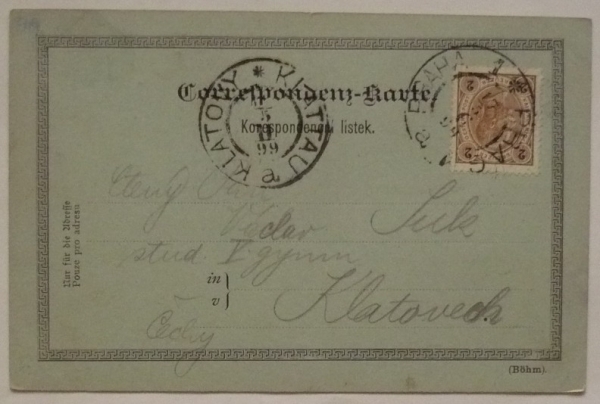 Correspondenz-Karte
Korespondenční lístek.
* KLATTAU * KLATOVY
5
II
99
PRAHA 1 PRAG
2 2
2 2
Nur für die Adresse
Pouze pro adresu
Ctěný Pan
Václav Suk
stud V gymn
in
v
Klatovech
Čechy
(Böhm.)